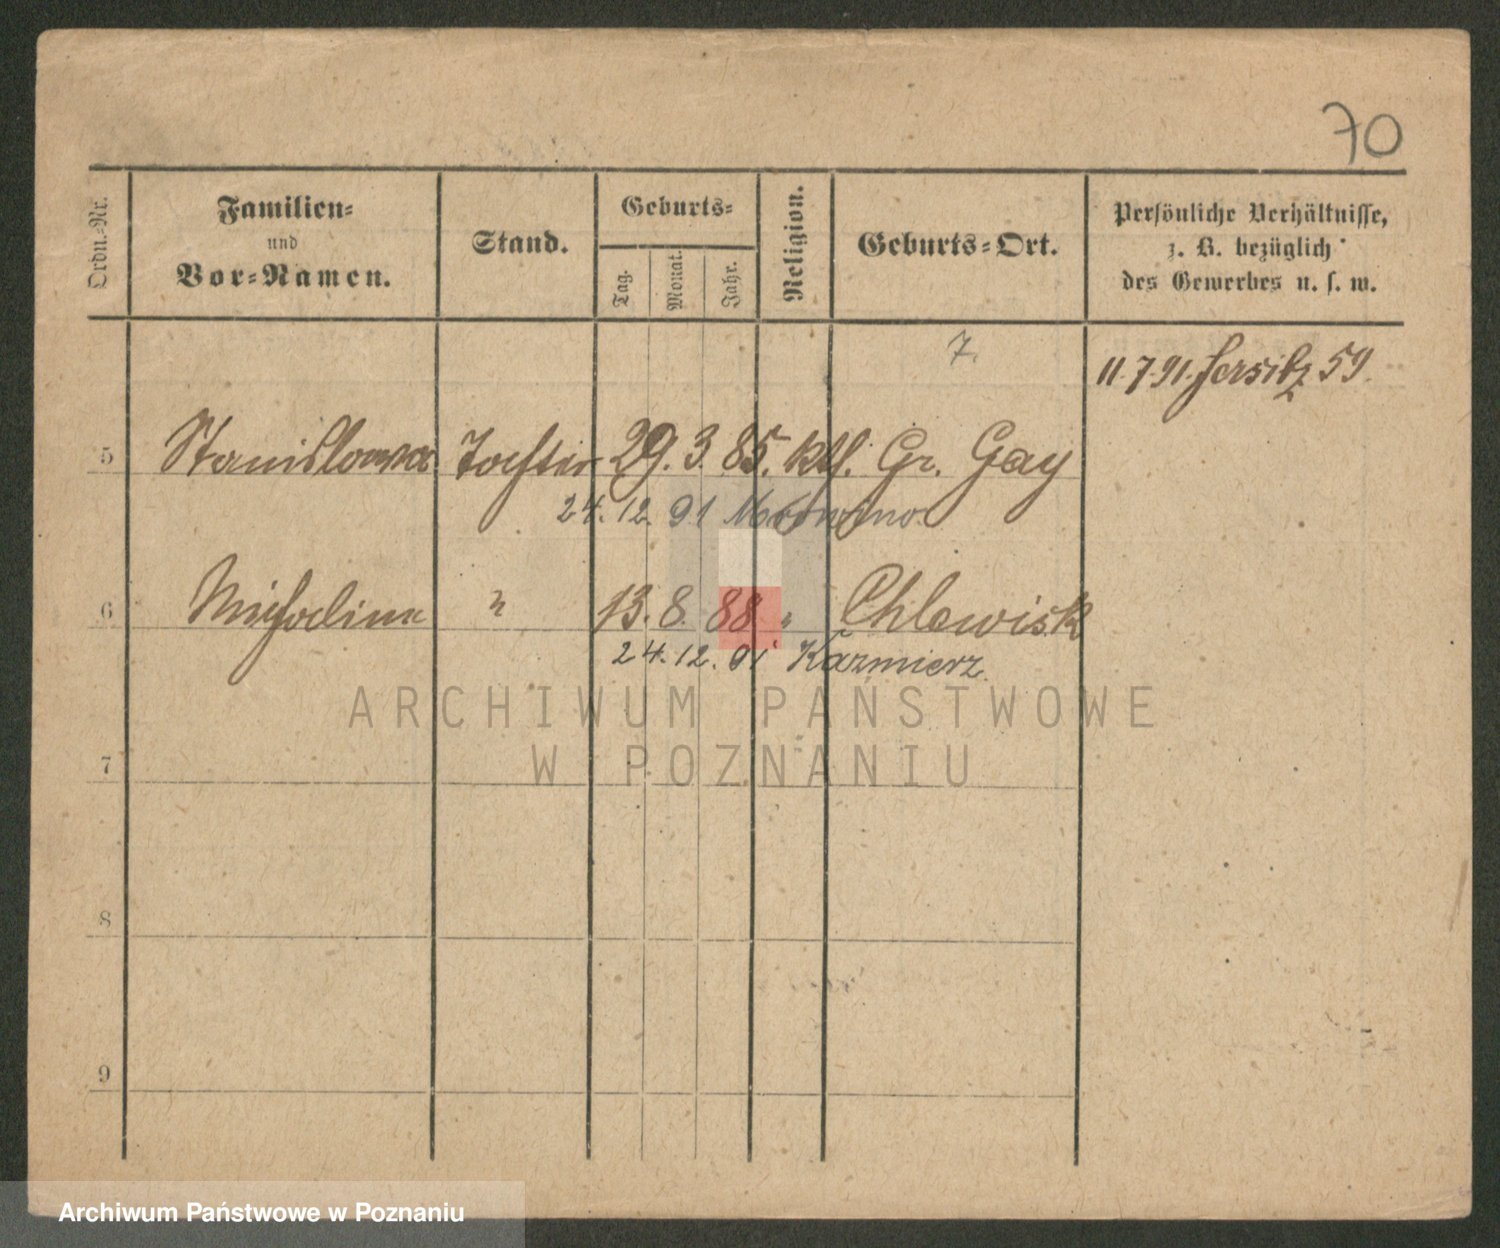 70
Ordn.-Nr.
Familien-
und
Vor-Namen.
Stand.
Geburts-
Tag.
Monat.
Jahr.
Religion.
Geburts-Ort.
Persönliche Verhältnisse,
z. B. bezüglich
des Gewerbes u. s. w.
7.
11.7.91. Jersitz 59.
5 Stanislawa Tochter 29. 3. 85. kth. Gr. Gay
24. 12. 91
6 Michalina " 13. 8. 88 " Chlewisk
24. 12. 91 Kazmierz.
ARCHIWUM PAŃSTWOWE
W POZNANIU
7
8
9
Archiwum Państwowe w Poznaniu